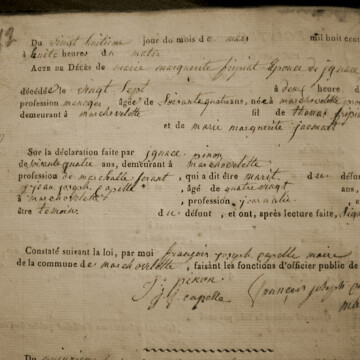 Du Vinst huitieme jour du mois de mars mil huit cent
à huite heures du matin
ACTE DE DÉCÈS de marie marguerite fripiat Epouce de ignace
décédée le Vingt Sept à deux heure d
profession menager âgée de Soixante quatre ans, née à marchovelette
demeurant à marchovelette fil de thomas fripia
et de marie marguerite jacmart
Sur la déclaration faite par ignace pinon
de soixante quatre ans, demeurant à marchovelette
profession de marechalle ferant, qui a dit être marit du défun
j jean joseph capelle, âgé de quatre vingt ans,
à marchovelette, profession journalie
être temoin du défunt, et ont, après lecture faite, Signé
Constaté suivant la loi, par moi françois joseph capelle maire
de la commune de marchovelette, faisant les fonctions d'officier public de
J. pinon
J J capelle
françois joseph
Du